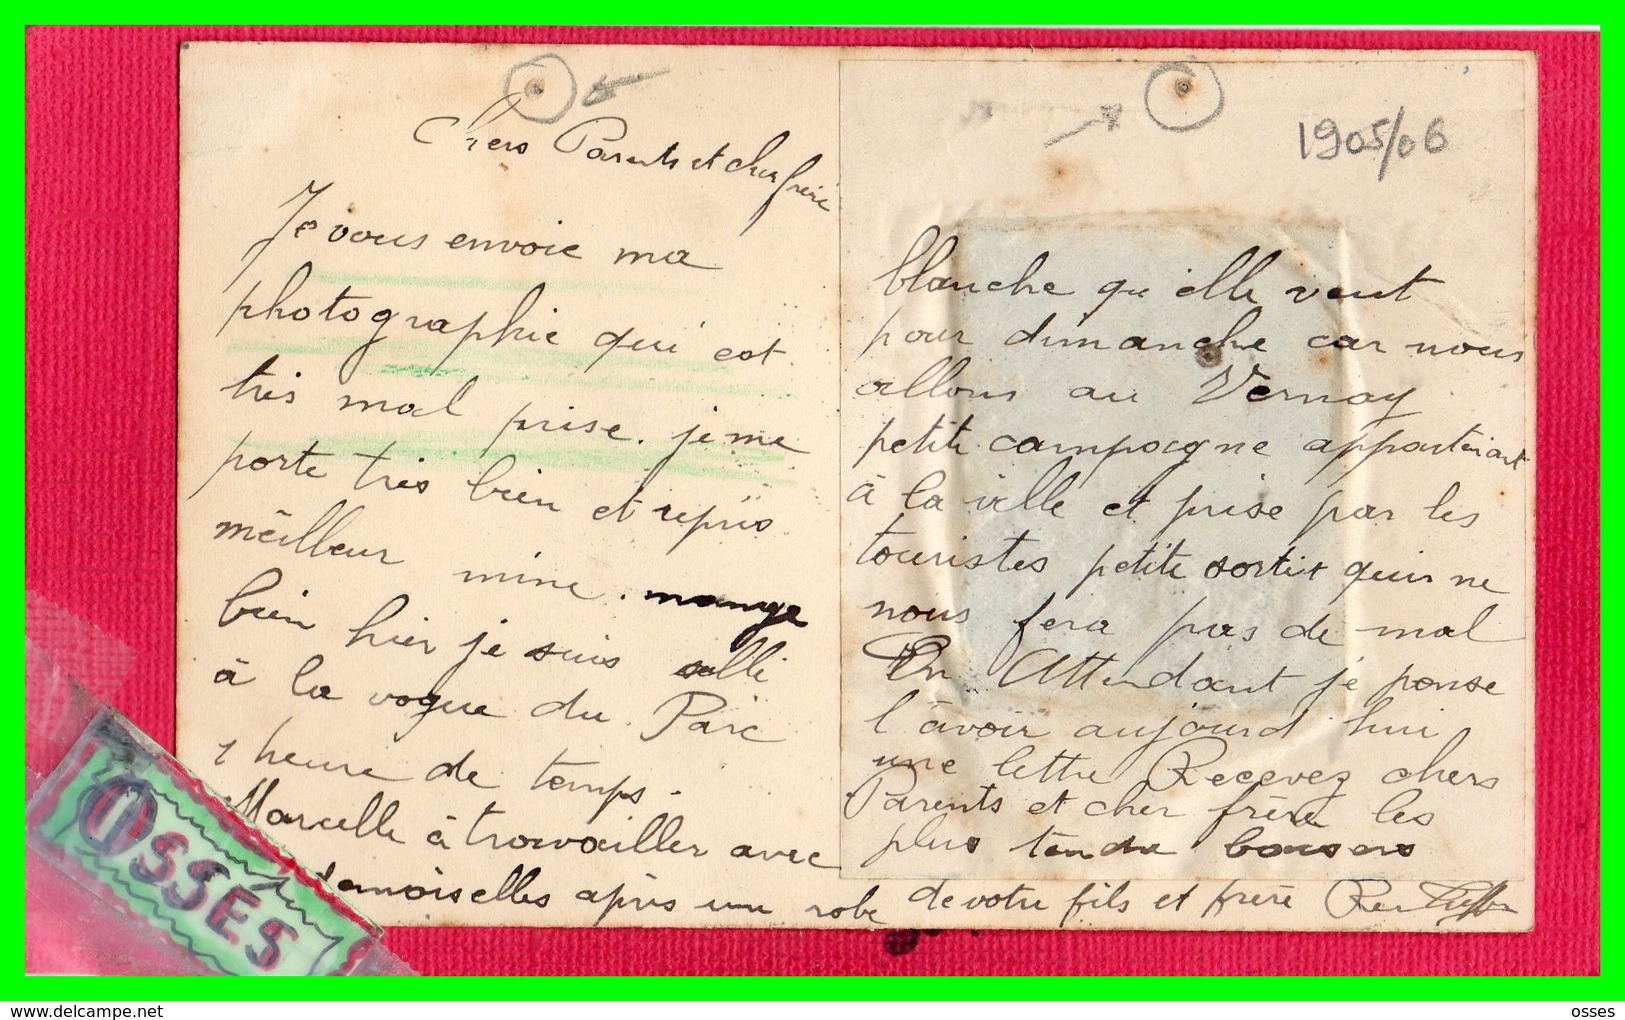 1905/06
Chers Parents et cher frère
Je vous envoie ma
photographie qui est
très mal prise. je me
porte très bien et repris
meilleur mine. mange
bien hier je suis allé
à la vogue du Parc
1 heure de temps.
Marcelle à travailler avec
demoiselles après une robe
blanche qu'elle veut
pour dimanche car nous
allons au Vernay
petite campagne appartenant
à la ville et prise par les
touristes petite sortie qui ne
nous fera pas de mal
En Attendant je pense
l'avoir aujourd hui
une lettre Recevez chers
Parents et cher frère les
plus tendre baisers
de votre fils et frère
OSSÈS
delcampe.net
osses